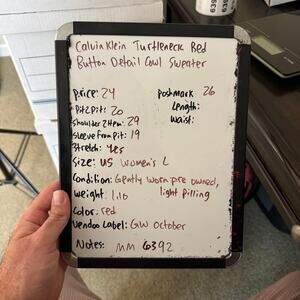 Calvin Klein Turtleneck Red
Button Detail Cowl Sweater
Price: 24
Poshmark 26
Pit2Pit: 20
Length:
Shoulder2Hem: 29
Waist:
Sleeve from Pit: 19
Stretch: Yes
Size: US Women's L
Condition: Gently worn pre owned,
light pilling
Weight: 1.10
Color: red
Vendoo Label: GW October
Notes: MM 6392